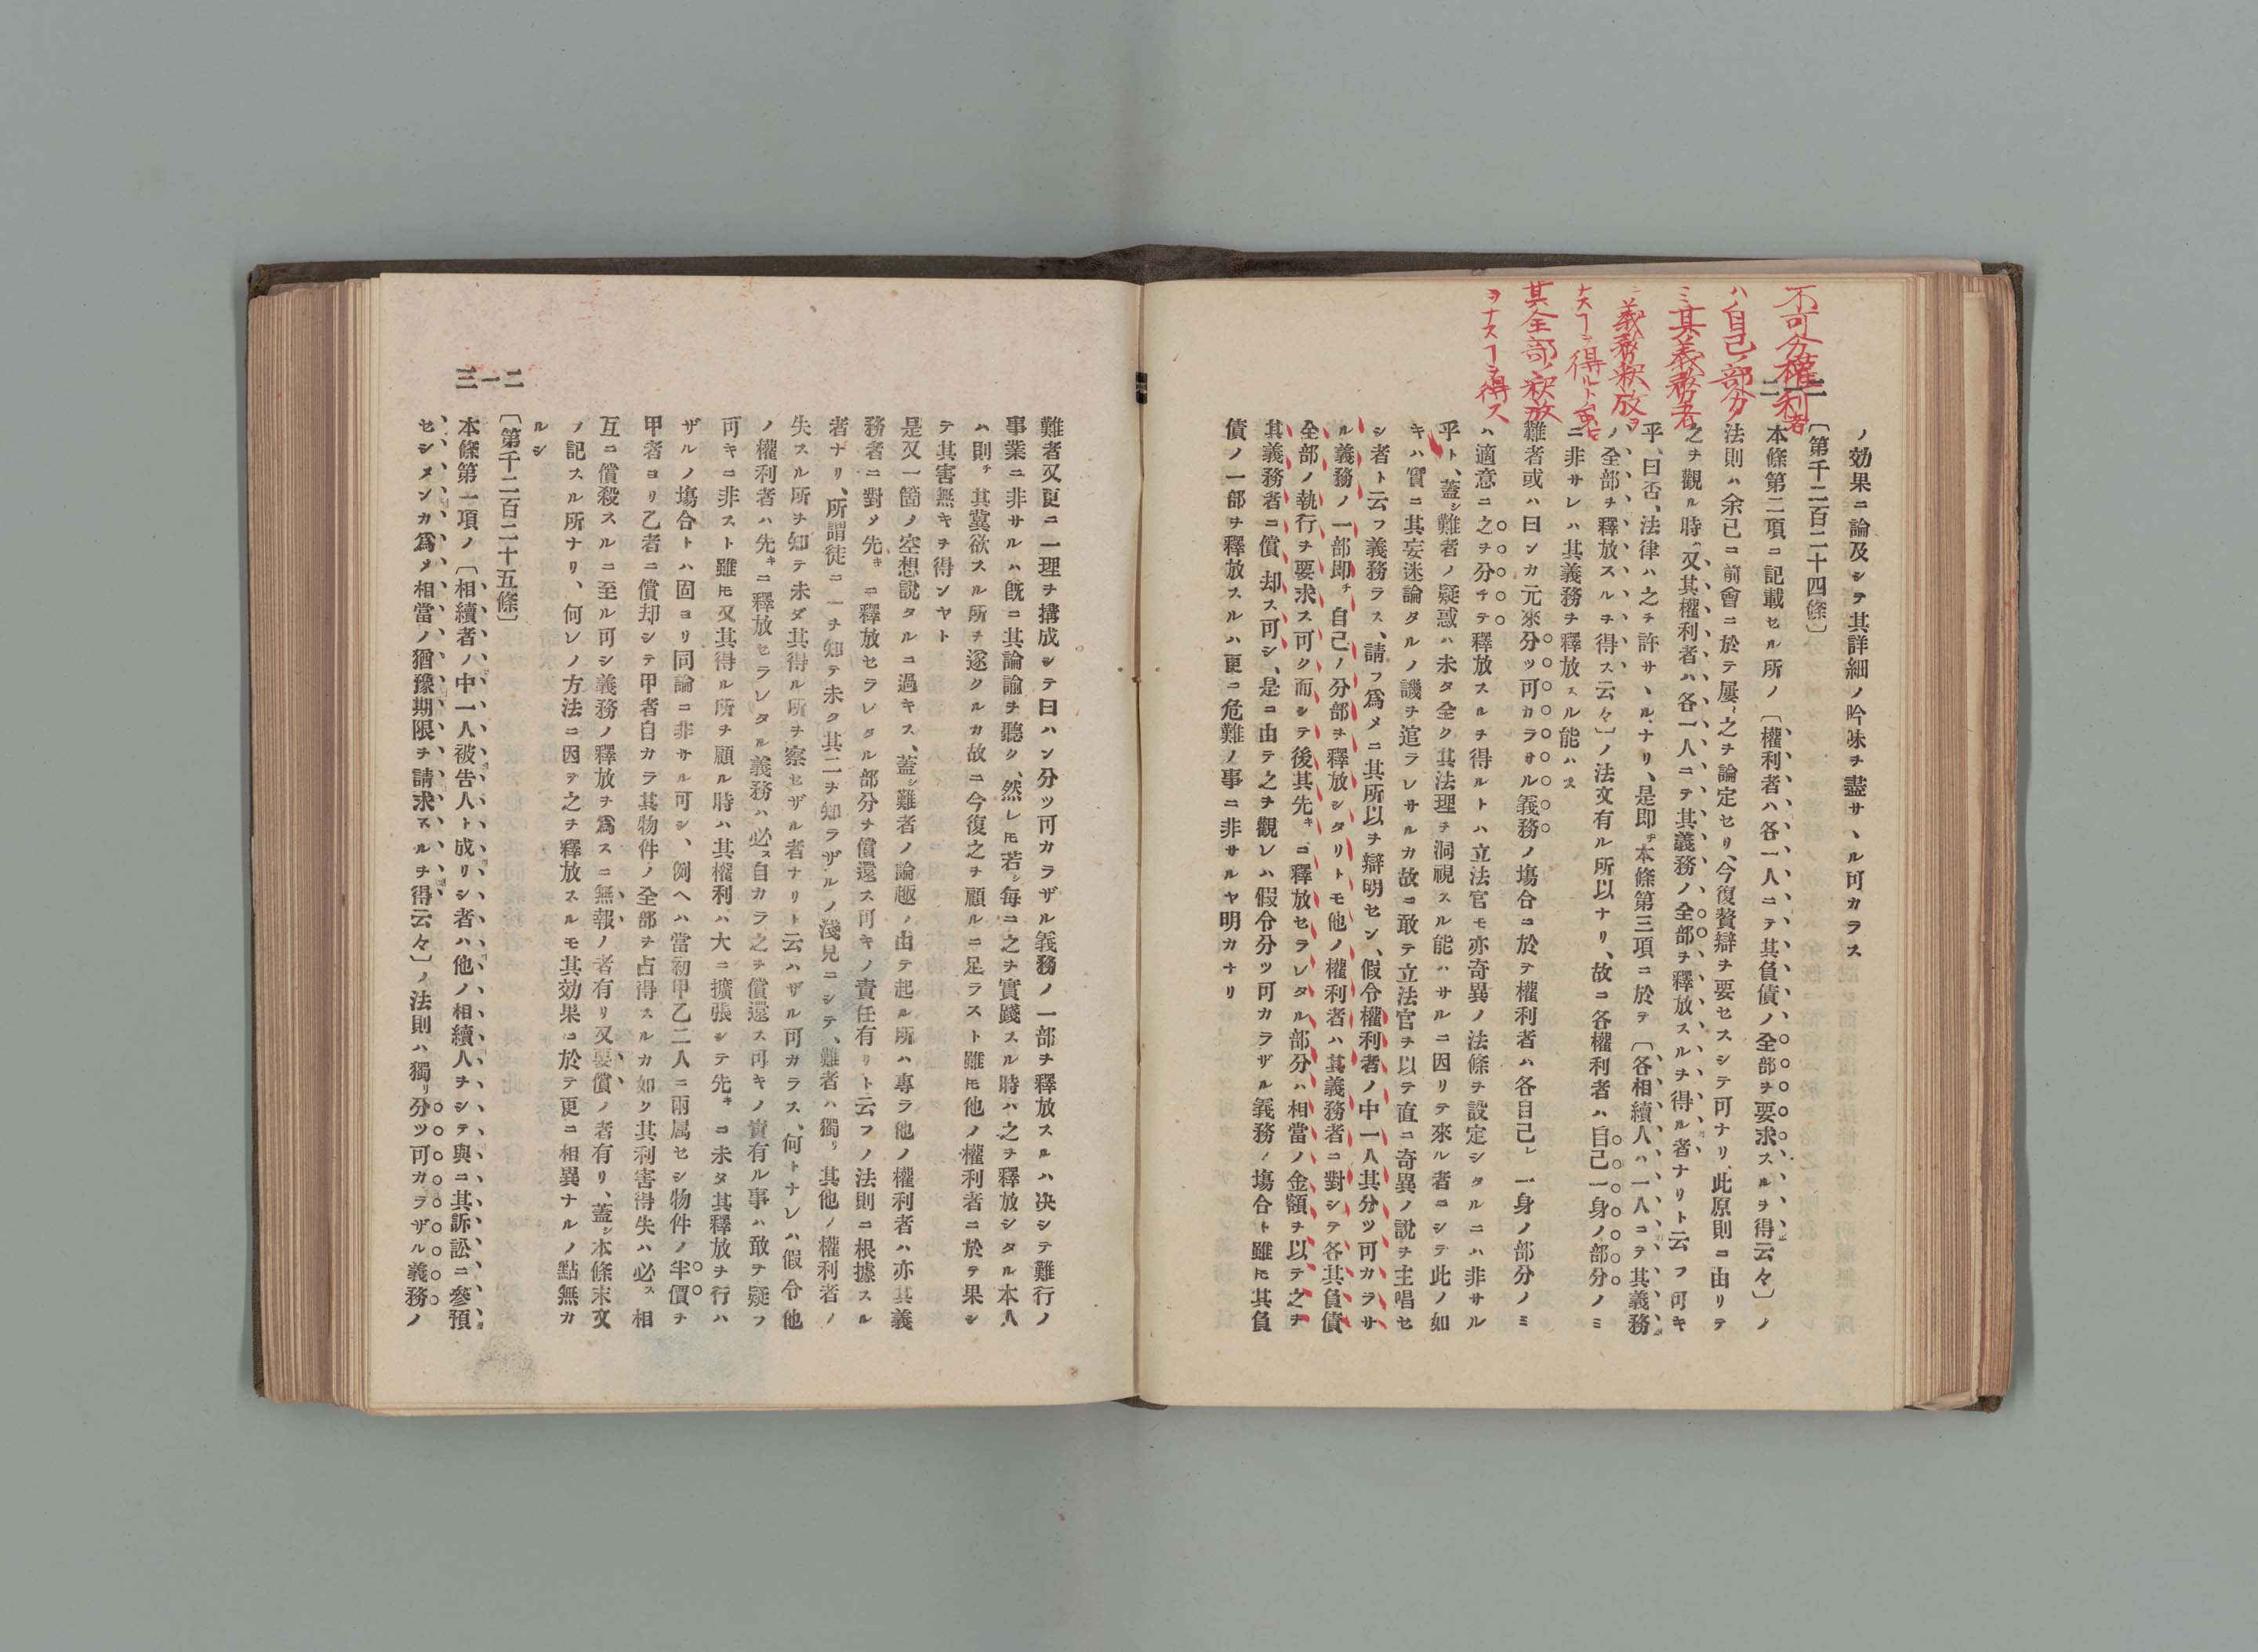 不可分權利者
ハ自己ノ部分ノ
ミ其義務者
ニ義務釈放ヲ
ナスヿヲ得ルト雖モ
其全部ノ釈放
ヲナスヿヲ得ス
二一二
ノ効果ニ論及シテ其詳細ノ吟味ヲ盡サヽル可カラス
〔第千二百二十四條〕
本條第二項ニ記載セル所ノ〔權利者ハ各一人ニテ其負債ノ全部ヲ要求スルヲ得云々〕ノ
法則ハ余已ニ前會ニ於テ屢〻之ヲ論定セリ、今復贅辯ヲ要セスシテ可ナリ、此原則ニ由リテ
之ヲ觀ル時ハ又其權利者ハ各一人ニテ其義務ノ全部ヲ釋放スルヲ得ル者ナリト云フ可キ
乎、曰否、法律ハ之ヲ許サヽルナリ、是即チ本條第三項ニ於テ〔各相續人ハ一人ニテ其義務
ノ全部ヲ釋放スルヲ得ス云々〕ノ法文有ル所以ナリ、故ニ各權利者ハ自己一身ノ部分ノミ
ニ非サレハ其義務ヲ釋放スル能ハス
難者或ハ曰ンカ元來分ツ可カラサル義務ノ塲合ニ於テ權利者ハ各自己レ一身ノ部分ノミ
ハ適意ニ之ヲ分チテ釋放スルヲ得ルトハ立法官モ亦奇異ノ法條ヲ設定シタルニハ非サル
乎ト、蓋シ難者ノ疑惑ハ未タ全ク其法理ヲ洞視スル能ハサルニ因リテ來ル者ニシテ此ノ如
キハ實ニ其妄迷論タルノ譏ヲ逭ラレサルカ故ニ敢テ立法官ヲ以テ直ニ奇異ノ說ヲ主唱セ
シ者ト云フ義務ラス、請フ爲メニ其所以ヲ辯明セン、假令權利者ノ中一人其分ツ可カラサ
ル義務ノ一部即チ自己ノ分部ヲ釋放シタリトモ他ノ權利者ハ其義務者ニ對シテ各其負債
全部ノ執行ヲ要求ス可ク而シテ後其先キニ釋放セラレタル部分ハ相當ノ金額ヲ以テ之ヲ
其義務者ニ償却ス可シ、是ニ由テ之ヲ觀レハ假令分ツ可カラザル義務ノ塲合ト雖𪜈其負
債ノ一部ヲ釋放スルハ更ニ危難ノ事ニ非サルヤ明カナリ
難者又更ニ一理ヲ搆成シテ曰ハン分ツ可カラザル義務ノ一部ヲ釋放スルハ决シテ難行ノ
事業ニ非サルハ旣ニ其論諭ヲ聽ク、然レ𪜈若シ毎ニ之ヲ實踐スル時ハ之ヲ釋放シタル本人
ハ則チ其冀欲スル所ヲ遂クルカ故ニ今復之ヲ顧ルニ足ラスト雖𪜈他ノ權利者ニ於テ果シ
テ其害無キヲ得ンヤト
是又一箇ノ空想說タルニ過キス、蓋シ難者ノ論趣ノ由テ起ル所ハ專ラ他ノ權利者ハ亦其義
務者ニ對メ先キニ釋放セラレタル部分ヲ償還ス可キノ責任有リト云フノ法則ニ根據スル
者ナリ、所謂徒ニ一ヲ知テ未タ其二ヲ知ラザルノ淺見ニシテ、難者ハ獨リ其他ノ權利者ノ
失スル所ヲ知テ未ダ其得ル所ヲ察セザル者ナリト云ハザル可カラス、何トナレハ假令他
ノ權利者ハ先キニ釋放セラレタル義務ハ必ス自カラ之ヲ償還ス可キノ責有ル事ハ敢テ疑フ
可キニ非スト雖𪜈又其得ル所ヲ顧ル時ハ其權利ハ大ニ擴張シテ先キニ未タ其釋放ヲ行ハ
ザルノ塲合トハ固ヨリ同論ニ非サル可シ、例ヘハ當初甲乙二人ニ兩属セシ物件ノ半價ヲ
甲者ヨリ乙者ニ償却シテ甲者自カラ其物件ノ全部ヲ占得スルカ如ク其利害得失ハ必ス相
互ニ償殺スルニ至ル可シ義務ノ釋放ヲ爲スニ無報ノ者有リ又要償ノ者有リ、蓋シ本條末文
ノ記スル所ナリ、何レノ方法ニ因テ之ヲ釋放スルモ其効果ニ於テ更ニ相異ナルノ點無カ
ルシ
〔第千二百二十五條〕
本條第一項ノ〔相續者ノ中一人被告人ト成リシ者ハ他ノ相續人ヲシテ與ニ其訴訟ニ參預
セシメンカ爲メ相當ノ猶豫期限ヲ請求スルヲ得云々〕ノ法則ハ獨リ分ツ可カラザル義務ノ
二一三